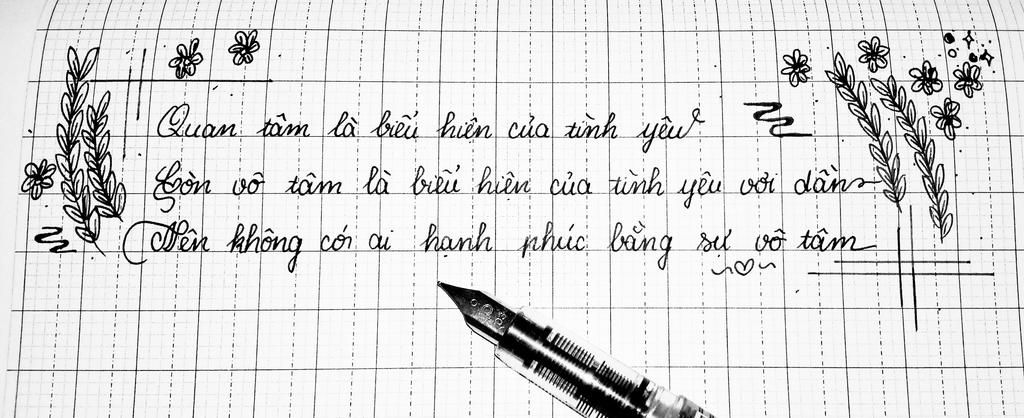 Quan tâm là biểu hiện của tình yêu
Còn vô tâm là biểu hiện của tình yêu vơi dần
Nên không có ai hạnh phúc bằng sự vô tâm